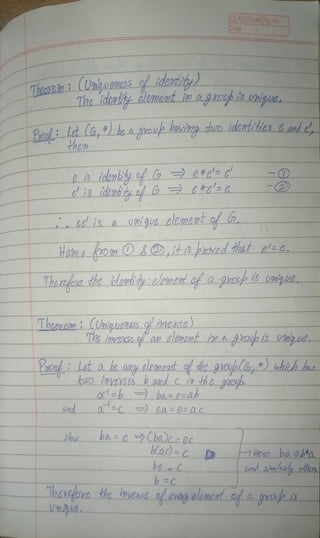 CLASSMATE Pg. No.
Date / /
Theorem : (Uniqueness of identity)
The identity element in a group is unique.
Proof : Let (G, *) be a group having two identities e and e',
then
e is identity of G ⇒ e*e' = e' - ①
e' is identity of G ⇒ e*e' = e - ②
∴ ee' is a unique element of G.
Hence from ① & ②, it is proved that e' = e.
Therefore the identity element of a group is unique.
Theorem : (Uniqueness of inverse)
The inverse of an element in a group is unique.
Proof : Let a be any element of the group (G, *) which has
two inverses b and c in the group
a⁻¹ = b ⇒ ba = e = ab
and a⁻¹ = c ⇒ ca = e = ac
Now ba = e ⇒ (ba)c = ec
b(ac) = c → Here ba is b*a
be = c and similarly others
b = c
Therefore the inverse of every element of a group is
unique.